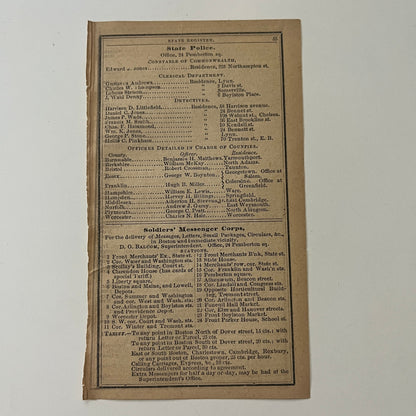 STATE REGISTER.
State Police.
Office, 24 Pemberton sq.
CONSTABLE OF COMMONWEALTH,
Edward J. Jones. Residence, 258 Northampton st.
CLERICAL DEPARTMENT.
Gustavus Andrews, Residence, Lynn.
Charles W. Thompson, " 3 Davis st.
Lebbeus Stetson, " Somerville.
J. Waldo Denny, " 5 Boylston Place.
DETECTIVES.
Harrison D. Littlefield, Residence, 58 Harrison avenue.
Daniel C. Jones, " 24 Bennet st.
James P. Wade, " Walnut st., Chelsea.
Francis M. " East Brookline st.
Chase F. Hammond, " Kendall st.
Wm. K. Jones, " 24 Bennett st.
George F. Stone, " Lynn.
Hollis C. Pinkham, " 70 Trenton st., E. B.
OFFICERS DETAILED IN CHARGE OF COUNTIES.
County. Officer. Residence.
Barnstable, Benjamin H. Matthews, Yarmouthport.
Berkshire, William McKay North Adams.
Bristol, Robert Crossman, Taunton.
Essex, George W. Boynton, Georgetown. Office at Salem.
Franklin, Hugh B. Miller, Coleraine. Office at Greenfield.
Hampshire, William E. Lewis, Ware.
Hampden, Harvey H. Billings, Springfield.
Middlesex, Atherton H. Stevens, Jr., East Cambridge.
Norfolk, Andrew J. Guny, East Weymouth.
Plymouth, George C. Pratt, North Abington.
Worcester, Charles N. Hair, Worcester.
Soldiers' Messenger Corps,
For the delivery of Messages, Letters, Small Packages, Circulars, &c.,
in Boston and immediate vicinity.
D. O. BALCOM, Superintendent. Office, 34 Pemberton sq.
STATIONS.
1 Front Merchants' Ex., State st.
2 Cor. Water and Washington sts
3 Scollay's Building, Court st.
4 Clarendon House (has cards of
special Tariff.)
5 Liberty square.
6 Boston and Maine, and Lowell,
Depots.
7 Cor. Summer and Washington
and cor. West and Wash. sts.
8 Cor. Arlington and Boylston sts
and Providence depot.
9 Worcester Depot.
10 S. W. cor. Court and Wash. sts.
11 Cor. Winter and Tremont sts.
12 Front Merchants' Bank, State st
13 State House.
14 Merchants' row, cor. State st.
15 Cor. Franklin and Wash'n sts
16 Pemberton square.
17 Athenæum, Beacon street.
Cor. Lindall and Congress sts
Opposite Horticultural Building, Tremont street.
20 Cor. Arlington and Beacon sts
21 Faneuil Hall Market.
22 Cor. Elm and Hanover streets
23 Cor. Broad and Central streets
24 Front Hayloeum Market.
25 Front Parker House, School st.
TARIFF.—To any point in Boston North of Dover street, 15 cts.; with
return Letter or Parcel, 25 cts.
To any point in Boston South of Dover street, 20 cts.; with
return Letter or Parcel, 30 cts.
East or South Boston, Charlestown, Cambridge, Roxbury,
or any point out of Boston proper, 25 cts. per hour.
Calling Carriages, Express, &c., 10 cts.
Circulars delivered according to agreement.
Extra Messengers for half a day or day, may be had at the
Superintendent's Office.